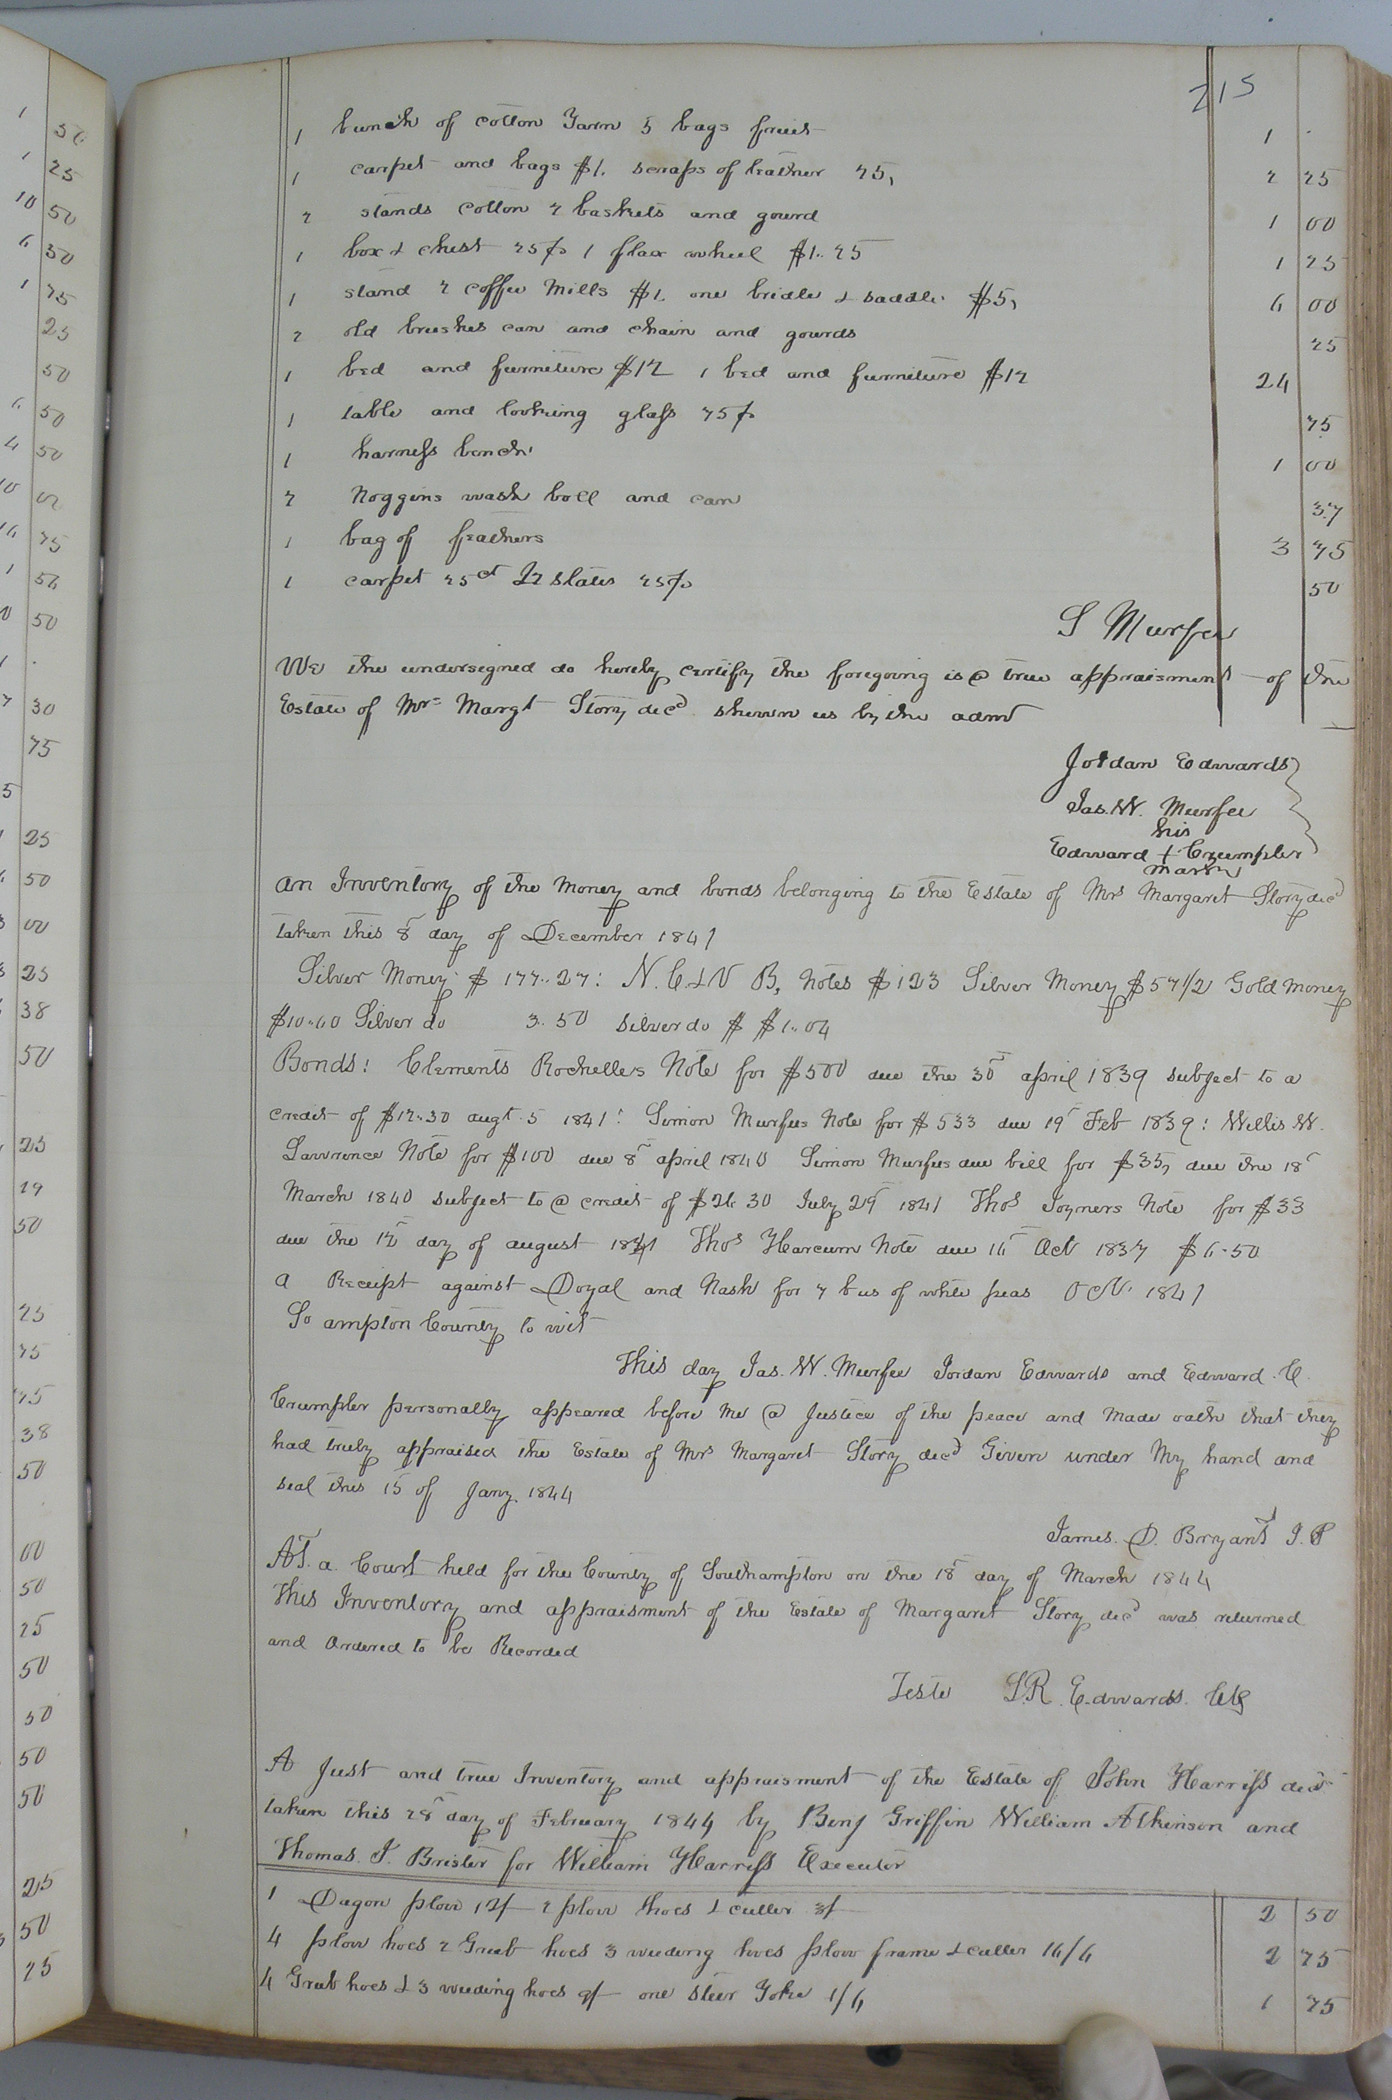 1 50
1 25
10 50
6 50
1 75
25
50
6 50
4 50
10 00
16 75
1 50
0 50
1 .
7 30
75
5
1 25
6 50
3 00
3 25
6 38
50
25
19
50
25
75
75
38
50
00
50
25
50
50
50
50
25
3 50
25
215
1 bunch of cotton Yarn 5 bags fruit 1 .
1 carpet and bags $1. scraps of leather 25, 2 25
2 stands cotton 2 baskets and gourd 1 00
1 box & chest 25 1 flax wheel $1..25 1 25
1 stand 2 coffee Mills $1. one bridle & saddle $5, 6 00
2 old brushes can and chain and gourds 25
1 bed and furniture $12 1 bed and furniture $12 24
1 table and looking glass 75 75
1 harness bench 1 00
2 Noggins wash boll and can 37
1 bag of feathers 3 75
1 carpet 25ct & 2 slates 25 50
S Murfee
We the undersigned do hereby certify the foregoing is a true appraisment of the
Estate of Mrs Margt Story decd shewn us by the admr
Jordan Edwards
Jas. W. Murfee
his
Edward + Crumpler
mark
An Inventory of the Money and bonds belonging to the Estate of Mrs Margaret Story decd
taken this 8th day of December 1841
Silver Money $ 177..27: N. C & V B, Notes $123 Silver Money $57 1/2 Gold Money
$10..60 Silver do 3..50 silver do $ $1..04
Bonds: Clements Rochelles Note for $500 due the 30th april 1839 subject to a
credit of $12..30 augt 5 1841: Simon Murfees Note for $533 due 19th Feb 1839: Willis W.
Lawrence Note for $100 due 8th april 1840 Simon Murfees due bill for $35, due the 18th
March 1840 subject to a credit of $26 30 July 29th 1841 Thos Joyners Note for $33
due the 12th day of august 1841 Thos Harcum Note due 16th Oct 1837 $6.50
a Receipt against Doyal and Nash for 7 bus of white peas Oct. 1841
So ampton County to wit
This day Jas. W. Murfee Jordan Edwards and Edward. C.
Crumpler personally appeared before me a Justice of the peace and Made oath that they
had truly appraised the Estate of Mrs Margaret Story decd Given under My hand and
seal this 15 of Jany 1844
James. D. Bryant J. P
At. a. Court held for the County of Southampton on the 18th day of March 1844
This Inventory and appraisment of the Estate of Margaret Story decd was returned
and Ordered to be Recorded
Teste L.R. Edwards. Clk
A Just and true Inventory and appraisment of the Estate of John Harriss decd
taken this 28th day of February 1844 by Benj Griffin William Atkinson and
Thomas. J. Brister for William Harriss Executor
1 Dagon plow 12/ 2 plow hoes & cutter 3/ 2 50
4 plow hoes 2 Grub hoes 3 weeding hoes plow frame & cutter 16/6 2 75
4 Grub hoes & 3 weeding hoes 9/ one steer Yoke 1/6 1 75